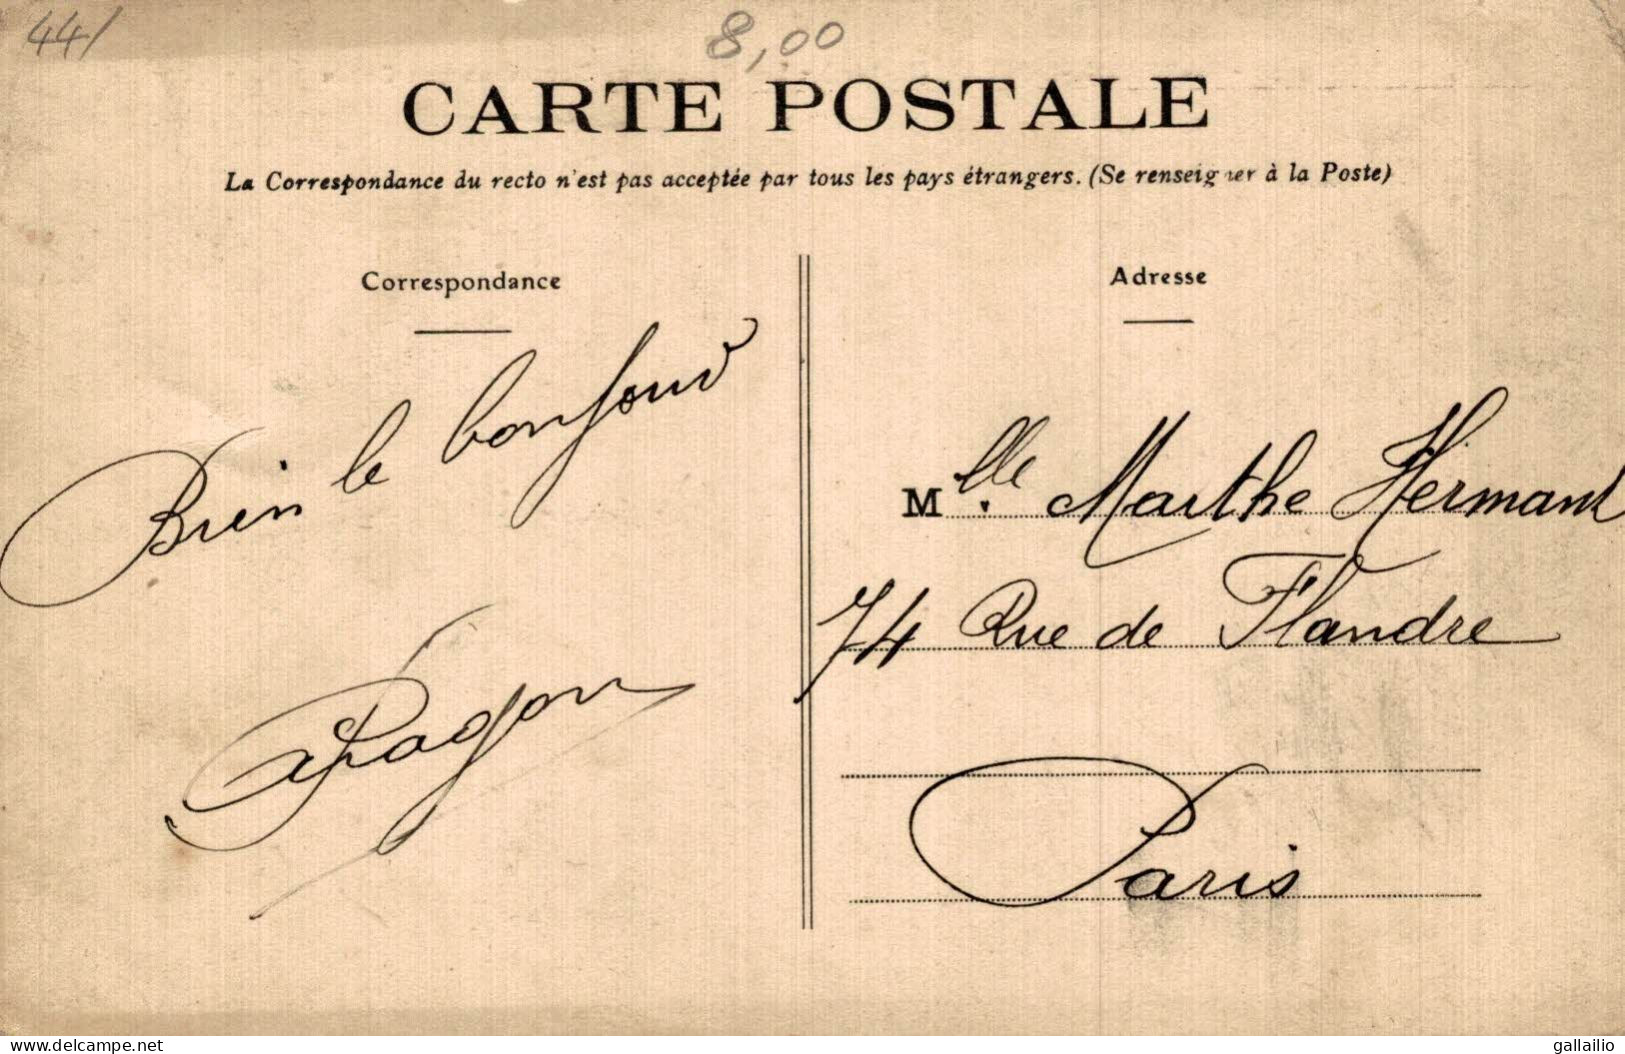 44/
8,00
CARTE POSTALE
La Correspondance du recto n'est pas acceptée par tous les pays étrangers. (Se renseigner à la Poste)
Correspondance
Bien le bonjour
Adresse
Mlle. Marthe Hermant
74 Rue de Flandre
Paris
www.delcampe.net
gallailio